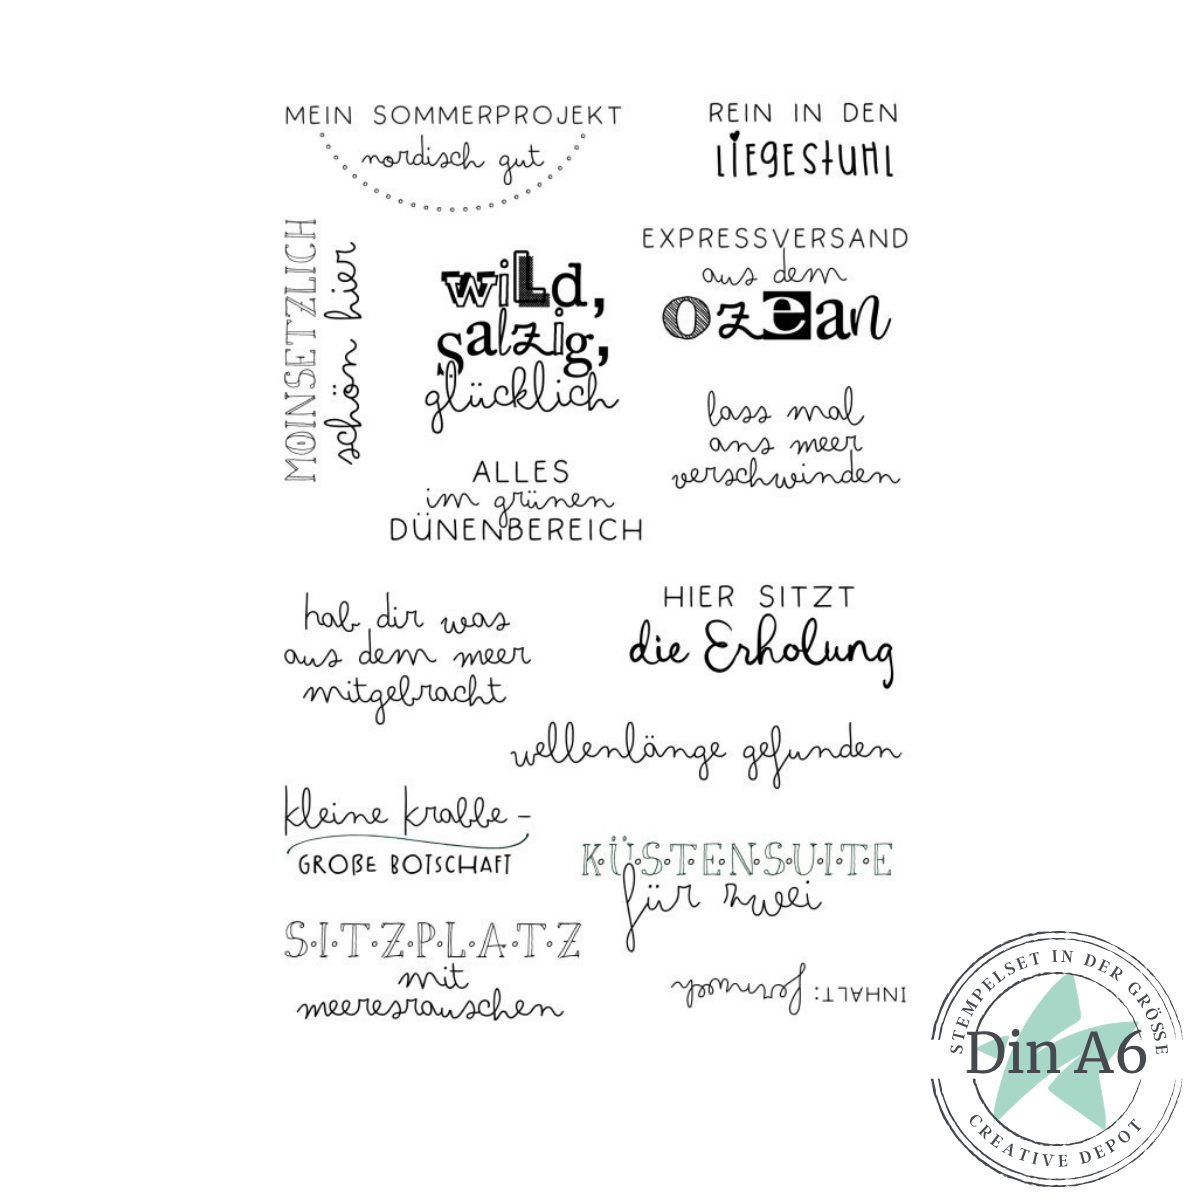 MEIN SOMMERPROJEKT
nordisch gut
REIN IN DEN
LIEGESTUHL
MOINSETZLICH
schön hier
wild,
salzig,
glücklich
EXPRESSVERSAND
aus dem
ozean
lass mal
ans meer
verschwinden
ALLES
im grünen
DÜNENBEREICH
hab dir was
aus dem meer
mitgebracht
HIER SITZT
die Erholung
wellenlänge gefunden
kleine krabbe -
GROßE BOTSCHAFT
K·Ü·S·T·E·N·S·U·I·T·E
für zwei
S·I·T·Z·P·L·A·T·Z
mit
meeresrauschen
INHALT: fernweh
STEMPELSET IN DER GRÖSSE
Din A6
CREATIVE DEPOT